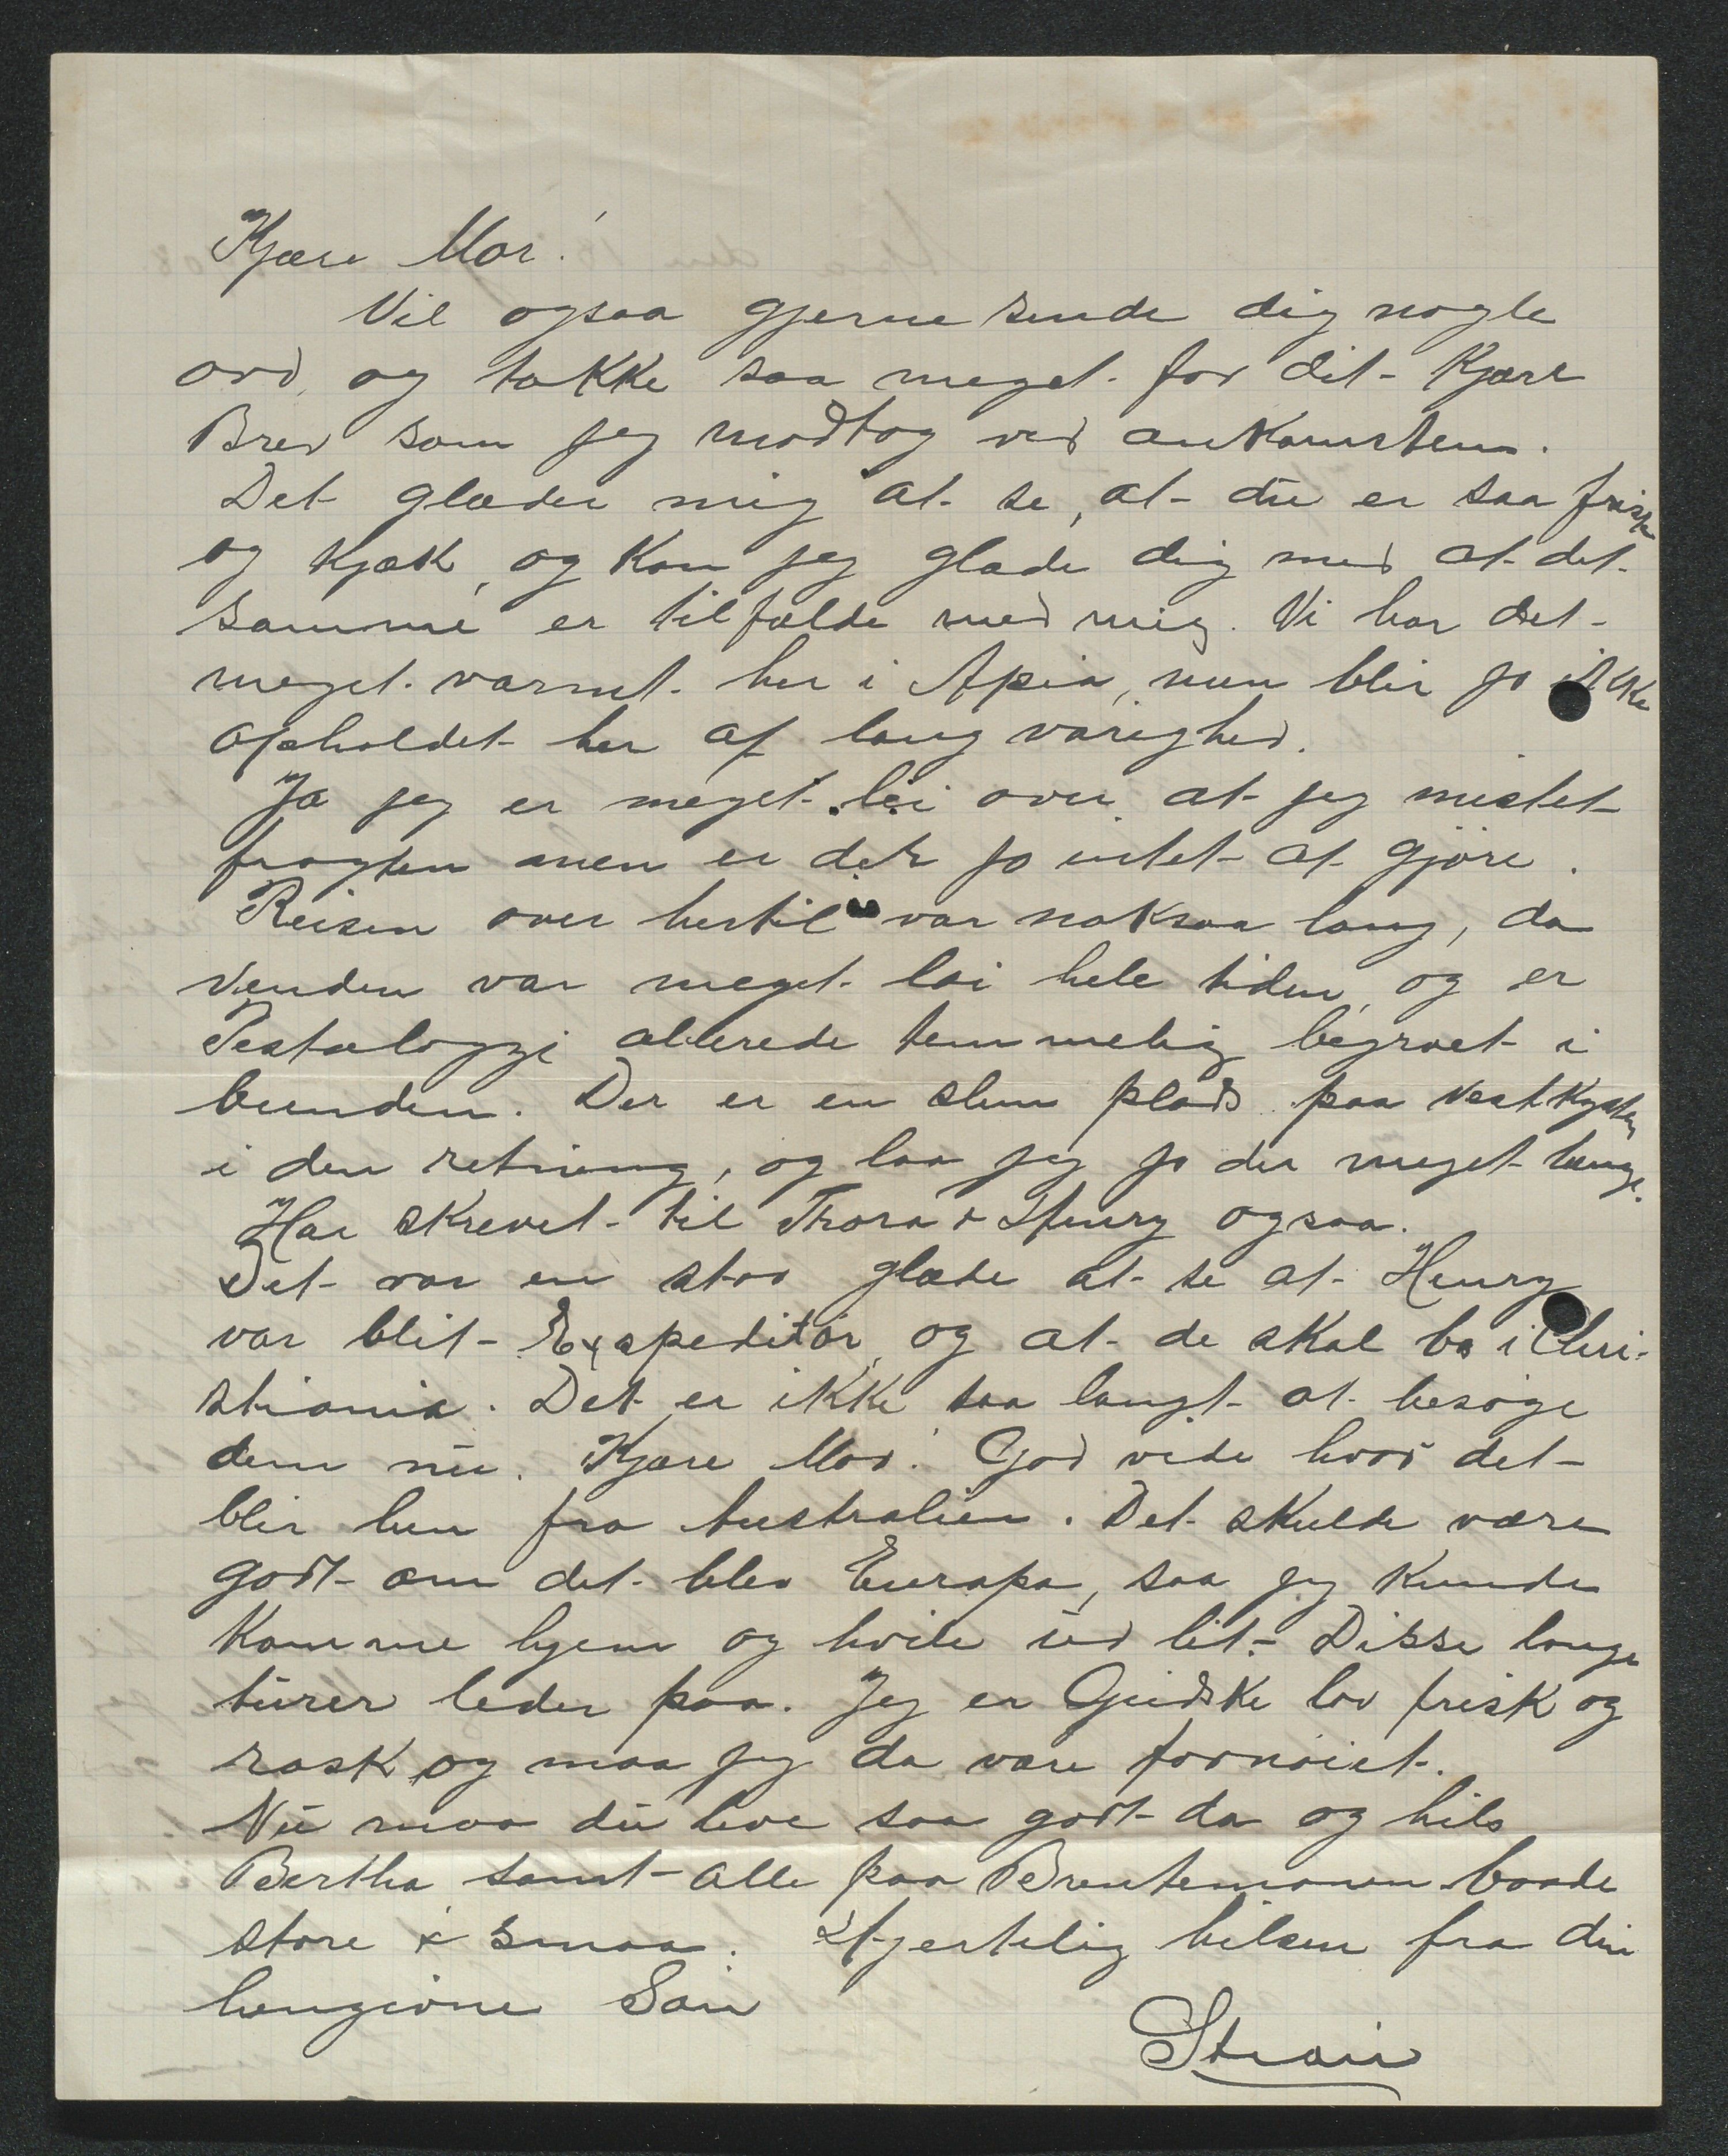 Kjære Mor!
Vil ogsaa gjerne sende dig nogle
ord, og takke saa meget for dit Kjære
Brev som jeg modtog ved ankomsten.
Det glæder mig at se, at du er saa frisk
og kjæk, og kan jeg glæde dig med at det
samme er tilfælde med mig. Vi har det
meget varmt her i Apia, men blir jo ikke
opholdet her af lang varighed.
Ja jeg er meget lei over at jeg mistet
fragten men er der jo intet at gjøre.
Reisen over hertil var noksaa lang, da
vinden var meget løi hele tiden, og er
Pestalozzi allerede temmelig begroet i
bunden. Der er en slem plads paa Vestkysten
i den retning, og laa jeg jo der meget længe.
Har skrevet til Thora & Henry ogsaa.
Det var en stor glæde at se at Henry
var blit Expeditør, og at de skal bo i Chri-
stiania. Det er ikke saa langt at besøge
dem nu. Kjære Mor! Gud vide hvor det
blir hen fra Australien. Det skulde være
godt om det blev Europa, saa jeg kunde
komme hjem og hvile ud lit. Disse lange
turer leder paa. Jeg er Gudske lov frisk og
rask, og maa jeg da være fornøiet.
Nu maa du leve saa godt da og hils
Bertha samt alle paa baade
store & smaa. Hjertelig hilsen fra din
hengivne Søn